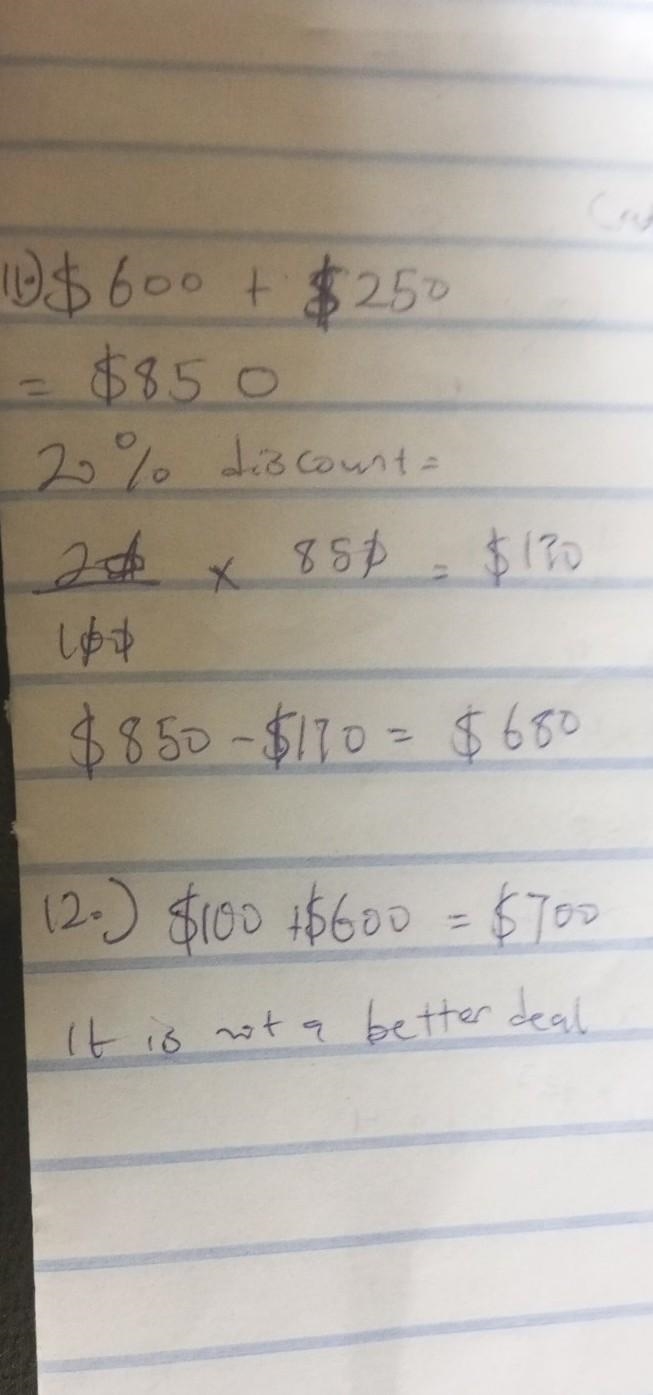 11.) $600 + $250
= $850
20% discount =
20/100 × 850 = $170
$850 - $170 = $680
12.) $100 + $600 = $700
It is not a better deal